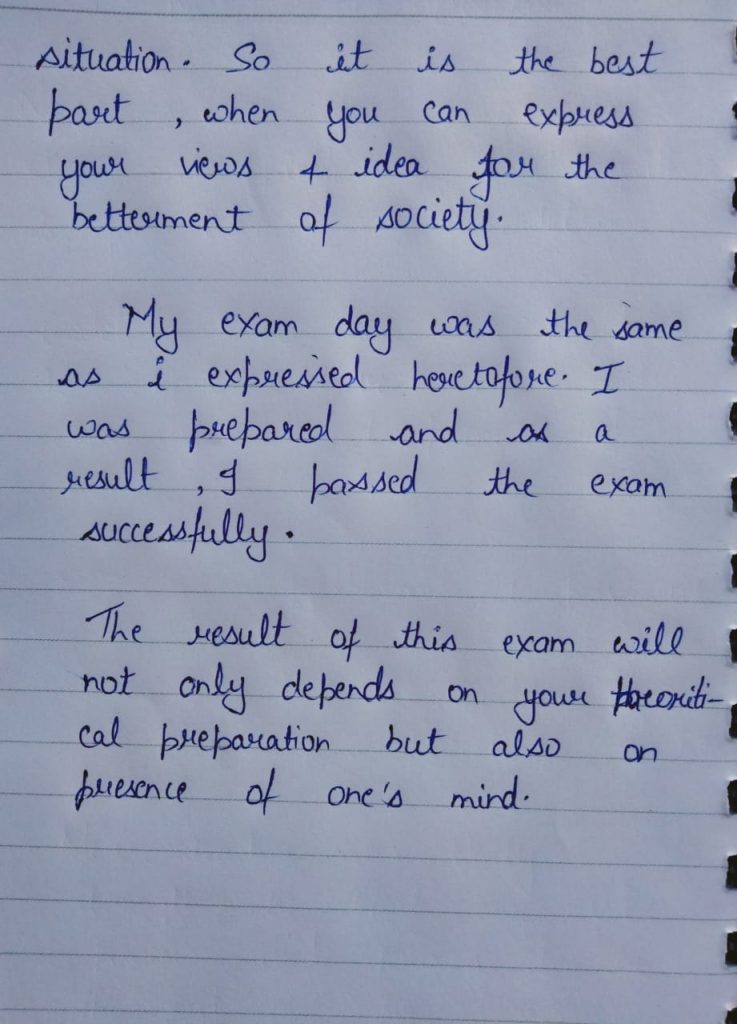 situation. So it is the best
part, when you can express
your views & idea for the
betterment of society.
My exam day was the same
as i expressed heretofore. I
was prepared and as a
result, I passed the exam
successfully.
The result of this exam will
not only depends on your theoriti-
cal preparation but also on
presence of one's mind.